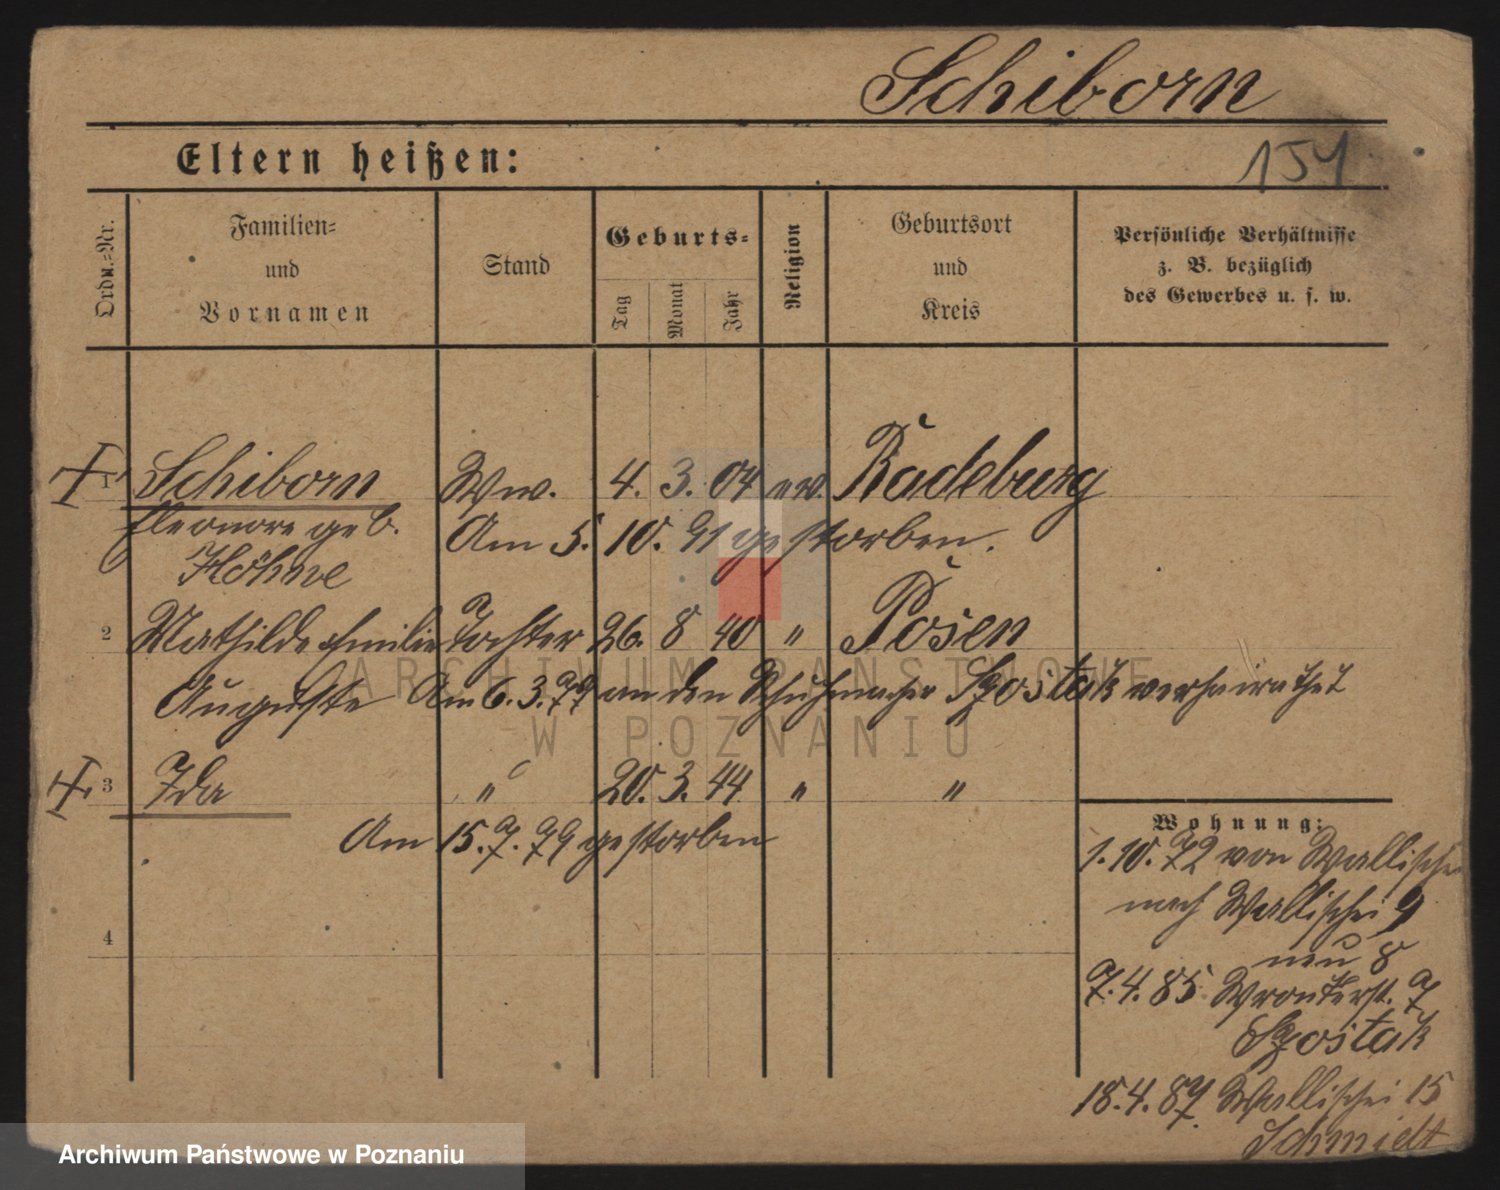 Schiborn
Eltern heißen:
151
Ordn.-Nr.
Familien-
und
Vornamen
Stand
Geburts-
Tag
Monat
Jahr
Religion
Geburtsort
und
Kreis
Persönliche Verhältnisse
z. B. bezüglich
des Gewerbes u. s. w.
1 Schiborn Ww. 4. 3. 04 ev. Radeburg
Eleonore geb. Am 5. 10. 91 gestorben.
Höhne
2 Mathilde Emilie Tochter 26. 8 40 " Posen
Auguste Am 6. 3. 79 an den Schuhmacher Szostak verheirathet
ARCHIWUM PAŃSTWOWE
W POZNANIU
3 Ida " 20. 3. 44 " "
Am 15. 7. 79 gestorben
4
Wohnung:
1. 10. 72 von Wallischei
nach Wallischei 9
neu 8
7. 4. 85 Wronkerst. 7
Szostak
18. 4. 87 Wallischei 15
Schmidt
Archiwum Państwowe w Poznaniu